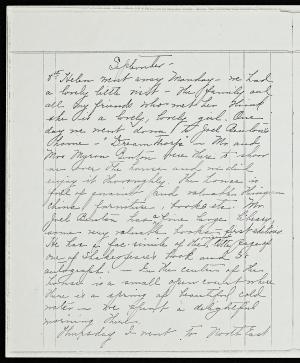 September -
8th Helen went away Monday - we had
a lovely little visit - The family and
all my friends who met her think
she is a lovely, lovely girl. One
day we went down to Joel Benton's
home - " - Mr and
Mrs Myron Benton were there to show
us over the house and we did
enjoy it thoroughly. The house is
full of quaint and valuable things in
china, furniture, books etc. Mr
Joel Benton has a large library,
some very valuable books - first editions
He has a fac-simile of the title page of
one of Shakespeare's book and
autograph. - In the center of the
house is a small open court where
there is a spring of beautiful cold
water - We spent a delightful
morning there.
Thursday I went to North East